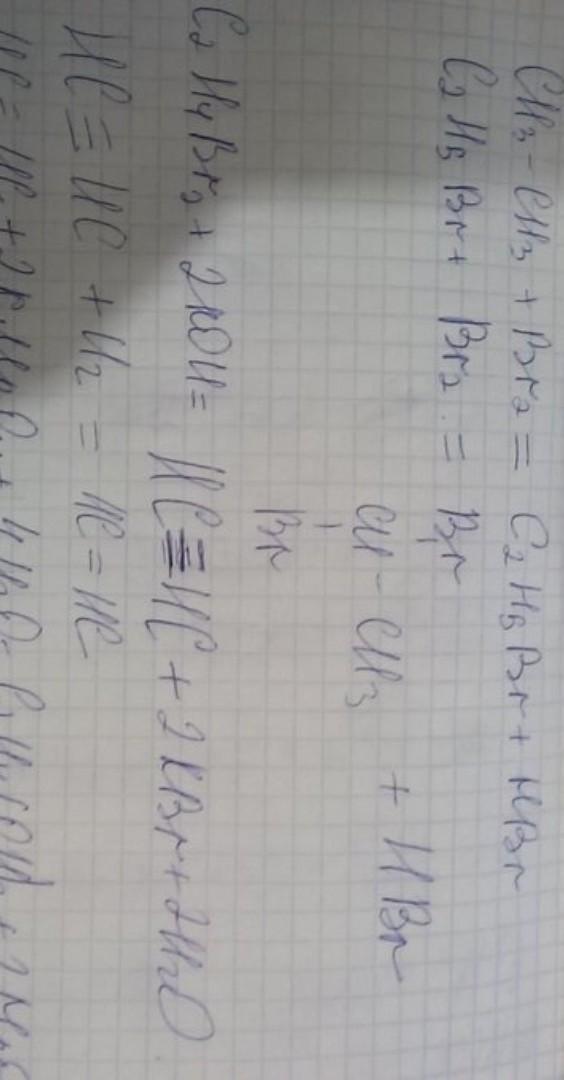 CH3-CH3 + Br2 = C2H5Br + HBr
C2H5Br + Br2 = Br
CH-CH3 + HBr
Br
C2H4Br2 + 2KOH = HC≡HC + 2KBr + 2H2O
HC≡HC + H2 = HC=HC